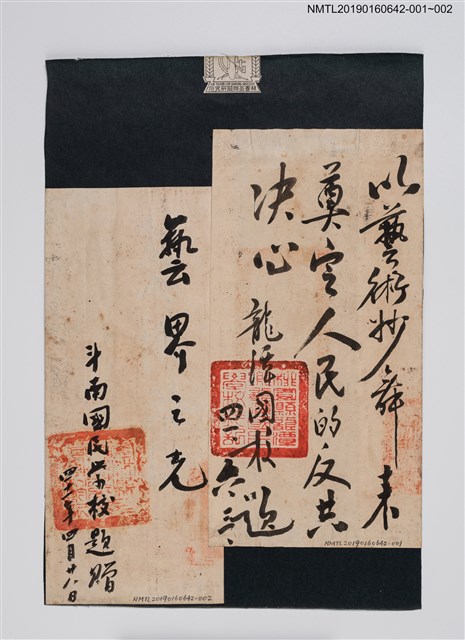 NMTL20190160642-001~002
以藝術妙舞来
奠定人民的反共
决心
龍潭國校題
四二、六、三、
NMTL20190160642-001
藝界之光
斗南國民学校題贈
四二年四月廿八日
NMTL20190160642-002